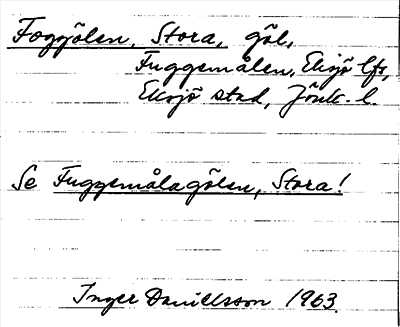 Foggölen, Stora, göl,
Fuggemålen, Eksjö lfs,
Eksjö stad, Jönk. l.
Se Fuggemålagölen, Stora!
Inger Danielsson 1963.